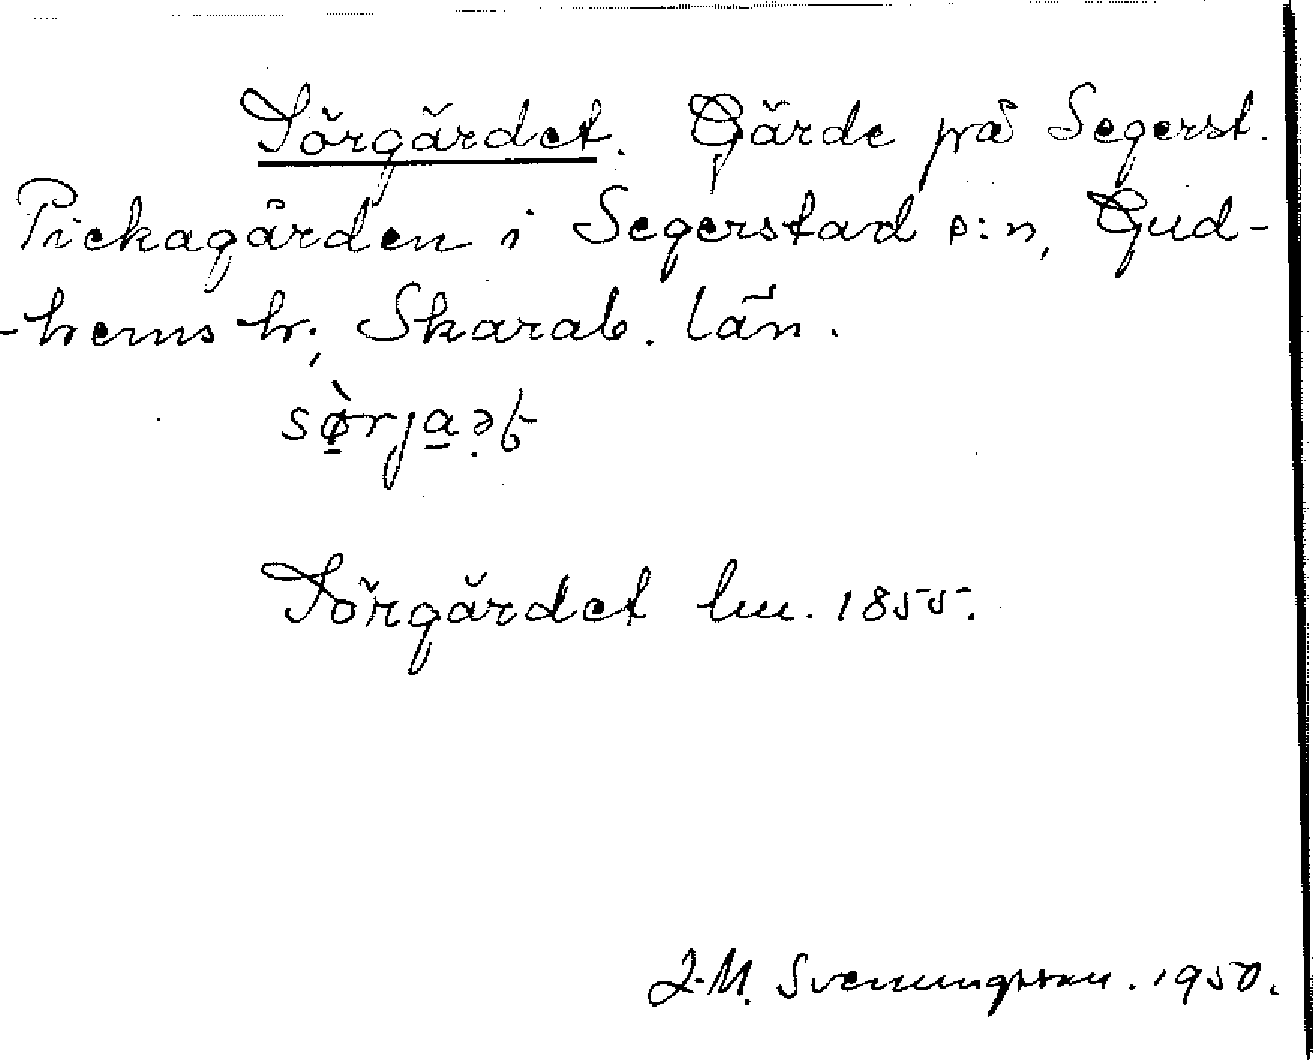 Sörgärdet. Gärde på Segerst.
Pickagården i Segerstad s:n, Gud-
-hems h., Skarab. län.
sø̀rja̠ət
Sörgärdet lm. 1855.
J. M. Svenungsson. 1950.